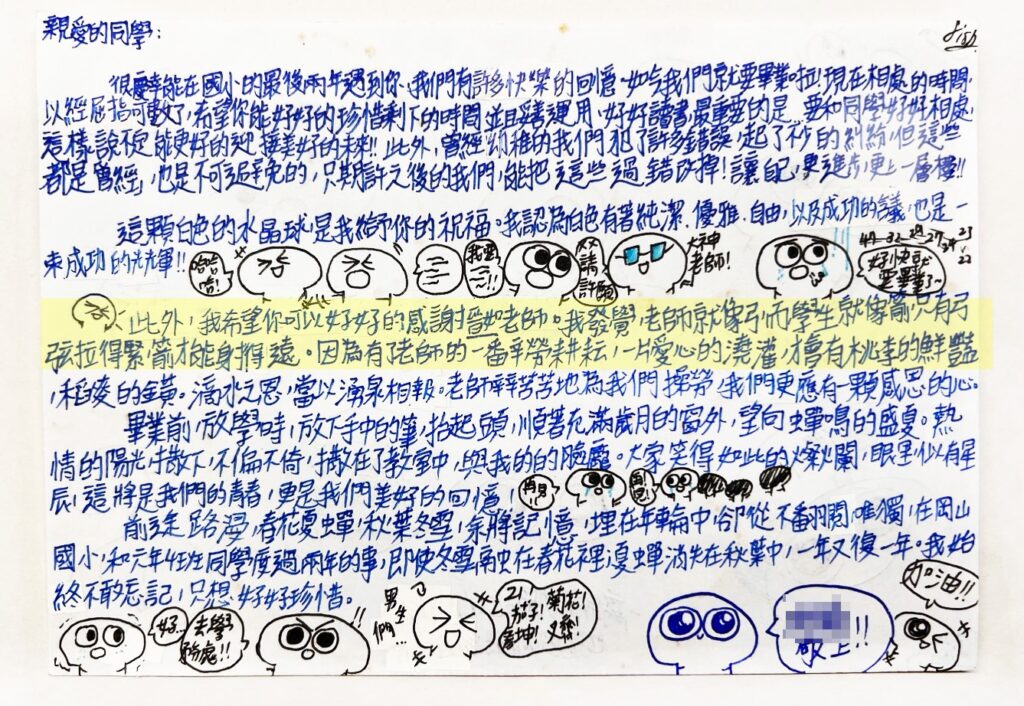 親愛的同學：
fish
很慶幸能在國小的最後兩年遇到你、我們有許多快樂的回憶，如今我們就要畢業啦！現在相處的時間，
以經屈指可數了，希望你能好好的珍惜剩下的時間並且妥善運用，好好讀書最重要的是，要和同學好好相處，
這樣說不定能更好的迎接美好的未來!! 此外，曾經幼稚的我們犯了許多錯誤，起了不少的糾紛，但這些
都是曾經，也是不可避免的，只期許之後的我們，能把這些過錯改掉！讓自己更進步，更上一層樓!!
這顆白色的水晶球，是我給予你的祝福。我認為白色有著純潔、優雅、自由，以及成功的意義，也是一
束成功的光輝!!
哈哈哈！
我要
請
大神老師！
好快就要畢業了～
此外，我希望你可以好好的感謝搢如老師。我發覺，老師就像弓，而學生就像箭，只有弓
弦拉得緊，箭才能射得遠。因為有了老師的一番辛勞耕耘，一片愛心的澆灌，才會有桃李的鮮豔
，稻麥的金黃。滴水之恩，當以湧泉相報。老師辛辛苦苦地為我們操勞，我們更應有一顆感恩的心。
畢業前，放學時，放下手中的筆，抬起頭，順著充滿歲月的窗外，望向蟬鳴的盛夏。熱
情的陽光撒下，不偏不倚，撒在了教室中，與我的的臉龐。大家笑得如此的燦爛，眼里似有星
辰，這將是我們的青春，更是我們美好的回憶！
再見
再見
前途路漫，春花夏蟬，秋葉冬雪，余將記憶，埋在年輪中，卻從不翻閱，唯獨，在岡山
國小，和六年 班同學度過兩年的事，即使冬雪融在春花裡，夏蟬消失在秋葉中，一年又復一年。我始
終不敢忘記，只想好好珍惜。
好…
去學務處!!
男生們…
21！茄子！菊花！
敬上!!
加油!!